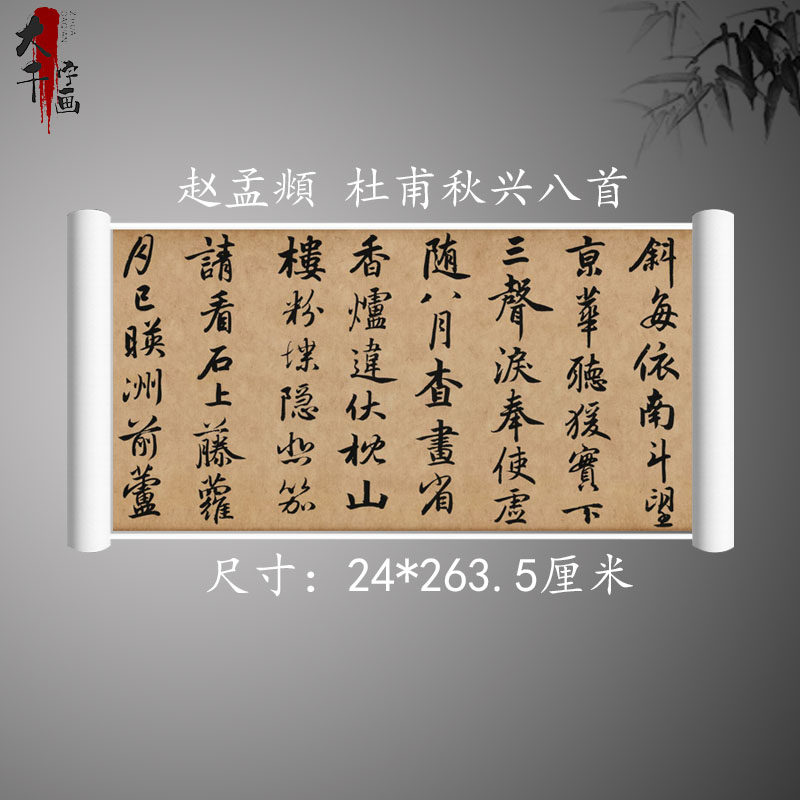 大千
字画
赵孟頫 杜甫秋兴八首
斜每依南斗望
亰華聽猨實下
三聲淚奉使虛
随八月查畫省
香爐違伏枕山
樓粉堞隐悲笳
請看石上藤蘿
月已暎洲前蘆
尺寸：24*263.5厘米